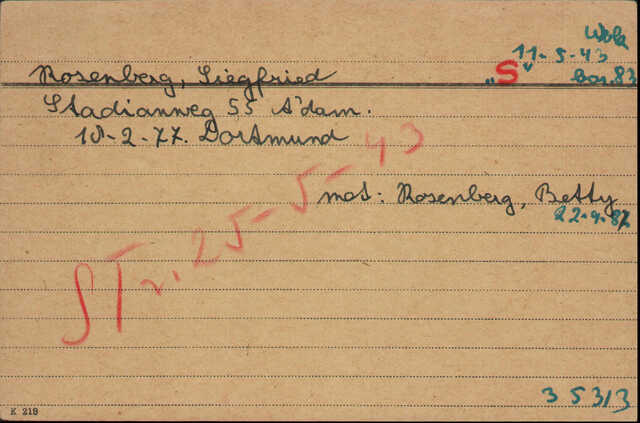 Wbk
11-5-43
"S"
bar. 83
Rosenberg, Siegfried
Stadianweg 55 A'dam.
18-2-77. Dortmund
mos: Rosenberg, Betty
22-9-87
STr. 25-5-43
3 5313
K 219